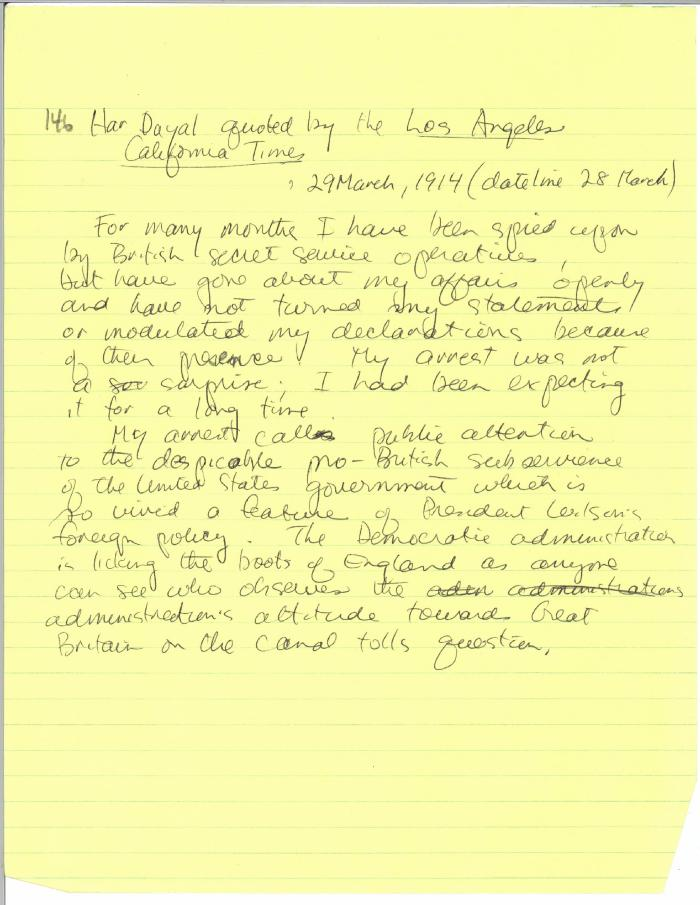 146 Har Dayal quoted by the Los Angeles
California Times
, 29 March, 1914 (dateline 28 March)
For many months I have been spied upon
by British secret service operatives,
but have gone about my affairs openly
and have not turned my statements
or modulated my declarations because
of their presence. My arrest was not
a surprise; I had been expecting
it for a long time.
My arrest calls public attention
to the despicable pro-British subservience
of the United States government which is
so vivid a feature of President Wilson's
foreign policy. The Democratic administration
is licking the boots of England as anyone
can see who observes the aden administrations
administration's attitude towards Great
Britain on the canal tolls question.